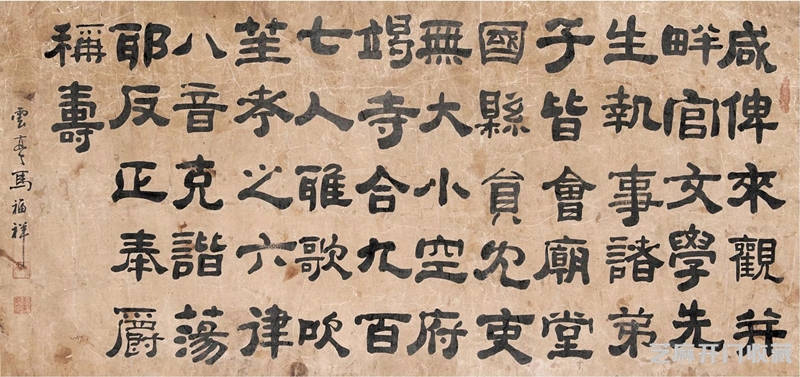 咸俾來觀并
畔官文學先
生執事諸弟
子皆會廟堂
國縣員冗吏
無大小空府
竭寺合九百
七人雅歌吹
笙考之六律
八音克諧蕩
耶反正奉爵
稱壽
雲亭馬福祥
芝麻开门收藏